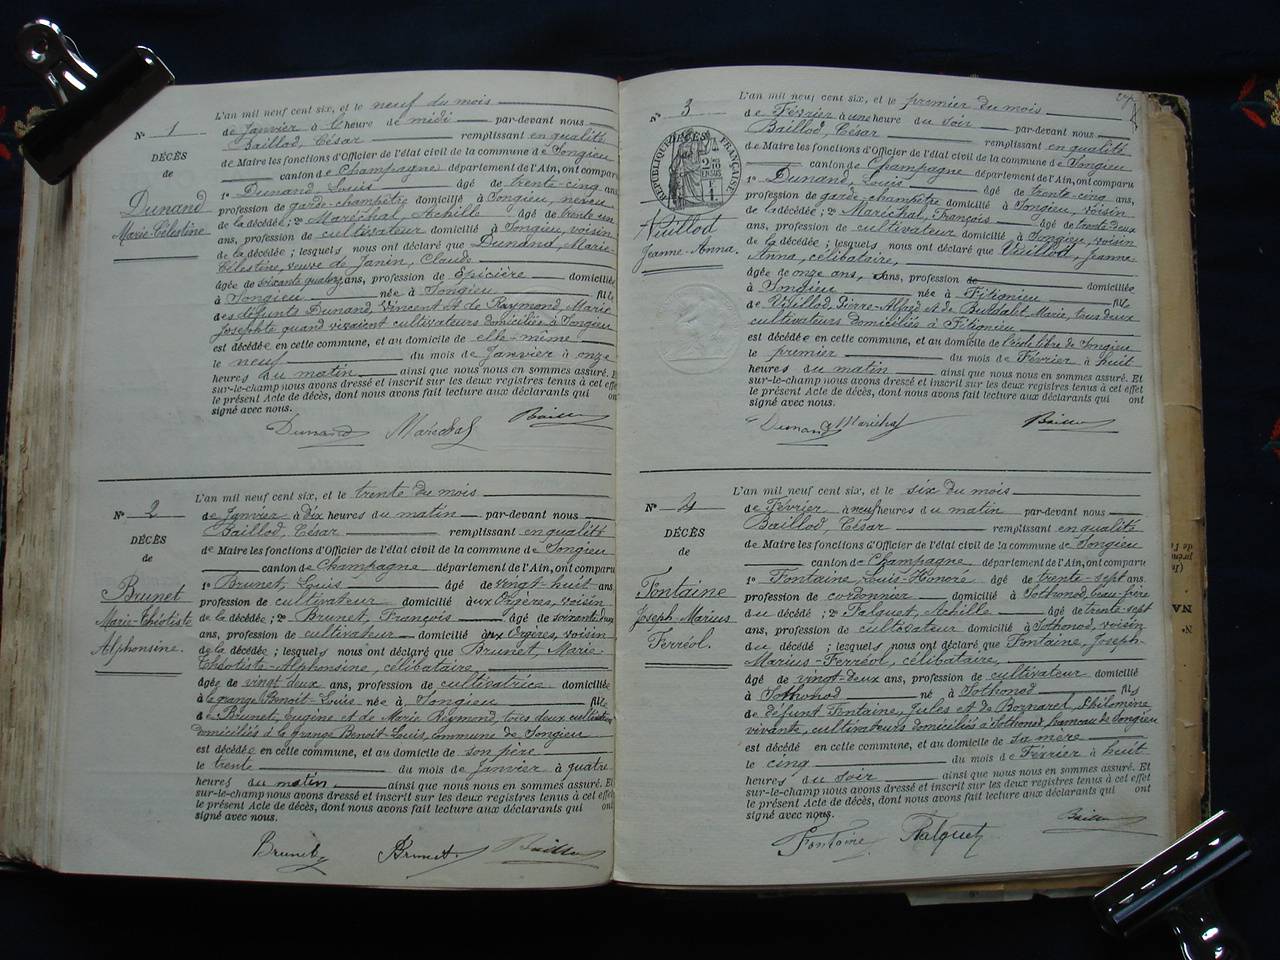 L'an mil neuf cent six, et le neuf du mois
N° 1
de Janvier à l'heure de midi par-devant nous
Baillod, César remplissant en qualité
DÉCÈS
de Maire les fonctions d'Officier de l'état civil de la commune de Songieu
de
canton de Champagne département de l'Ain, ont comparu
1° Dunand Louis âgé de trente-cinq ans,
Dunand
profession de garde-champêtre domicilié à Songieu, neveu
Marie-Célestine
de la décédée ; 2° Maréchal, Achille âgé de trente un
ans, profession de cultivateur domicilié à Songieu, voisin
de la décédée ; lesquels nous ont déclaré que Dunand, Marie-
Célestine, veuve de Janin, Claude
âgée de soixante quatorze ans, profession de Epicière domiciliée
à Songieu née à Songieu fille
des défunts Dunand, Vincent et de Raymond, Marie
Josephte quand vivaient cultivateurs domiciliés à Songieu
est décédée en cette commune, et au domicile de elle-même
le neuf du mois de Janvier à onze
heures du matin ainsi que nous nous en sommes assuré. Et
sur-le-champ nous avons dressé et inscrit sur les deux registres tenus à cet effet
le présent Acte de décès, dont nous avons fait lecture aux déclarants qui ont
signé avec nous.
Dunand Maréchal Baillod
L'an mil neuf cent six, et le trente du mois
N° 2
de Janvier à dix heures du matin par-devant nous
Baillod, César remplissant en qualité
DÉCÈS
de Maire les fonctions d'Officier de l'état civil de la commune de Songieu
de
canton de Champagne département de l'Ain, ont comparu
1° Brunet, Louis âgé de vingt-huit ans
Brunet
profession de cultivateur domicilié aux Orgères, voisin
Marie-Théotiste
de la décédée ; 2° Brunet, François âgé de soixante
Alphonsine.
ans, profession de cultivateur domicilié aux Orgères, voisin
de la décédée ; lesquels nous ont déclaré que Brunet Marie-
Théotiste-Alphonsine, célibataire,
âgée de vingt-deux ans, profession de cultivatrice domiciliée
à la grange Benoit-Louis née à Songieu
de Brunet, Eugène et de Marie Reymond, tous deux cultivateurs
domiciliés à la grange Benoit-Louis, commune de Songieu
est décédée en cette commune, et au domicile de son père
le trente du mois de Janvier à quatre
heures du matin ainsi que nous nous en sommes assuré. Et
sur-le-champ nous avons dressé et inscrit sur les deux registres tenus à cet effet
le présent Acte de décès, dont nous avons fait lecture aux déclarants qui ont
signé avec nous.
Brunet Brunet Baillod
L'an mil neuf cent six, et le premier du mois
N° 3
de Février à une heure du soir par-devant nous
Baillod, César remplissant en qualité
RÉPUBLIQUE FRANÇAISE
de Maire les fonctions d'Officier de l'état civil de la commune de Songieu
canton de Champagne département de l'Ain, ont comparu
1° Dunand, Louis âgé de trente-cinq ans,
profession de garde-champêtre domicilié à Songieu, voisin
Vuillod
de la décédée ; 2° Maréchal, François âgé de trente-deux
Jeanne-Anna.
ans, profession de cultivateur domicilié à Songieu, voisin
de la décédée ; lesquels nous ont déclaré que Vuillod, Jeanne-
Anna, célibataire,
âgée de onze ans, sans, profession de domiciliée
à Songieu née à Fitignieu fille
de Vuillod, Pierre-Alfred et de Marie, tous deux
cultivateurs domiciliés à Fitignieu
est décédée en cette commune, et au domicile de l'école libre de Songieu
le premier du mois de Février à huit
heures du matin ainsi que nous nous en sommes assuré. Et
sur-le-champ nous avons dressé et inscrit sur les deux registres tenus à cet effet
le présent Acte de décès, dont nous avons fait lecture aux déclarants qui ont
signé avec nous.
Dunand Maréchal Baillod
L'an mil neuf cent six, et le six du mois
N° 4
de Février à neuf heures du matin par-devant nous
Baillod, César remplissant en qualité
DÉCÈS
de Maire les fonctions d'Officier de l'état civil de la commune de Songieu
de
canton de Champagne département de l'Ain, ont comparu
1° Fontaine, Louis-Honoré âgé de trente-sept ans
Fontaine
profession de cordonnier domicilié à Sothonod, beau-frère
Joseph-Marius
du décédé ; 2° Falquet, Achille âgé de trente-sept
Ferréol.
ans, profession de cultivateur domicilié à Sothonod, voisin
du décédé ; lesquels nous ont déclaré que Fontaine, Joseph-
Marius-Ferréol, célibataire,
âgé de vingt-deux ans, profession de cultivateur domicilié
à Sothonod né à Sothonod fils
de défunt Fontaine, Jules et de Bornarel, Philomène
vivante, cultivateurs domiciliés à Sothonod, hameau de Songieu
est décédé en cette commune, et au domicile de sa mère
le cinq du mois de Février à huit
heures du soir ainsi que nous nous en sommes assuré. Et
sur-le-champ nous avons dressé et inscrit sur les deux registres tenus à cet effet
le présent Acte de décès, dont nous avons fait lecture aux déclarants qui ont
signé avec nous.
Fontaine Falquet Baillod